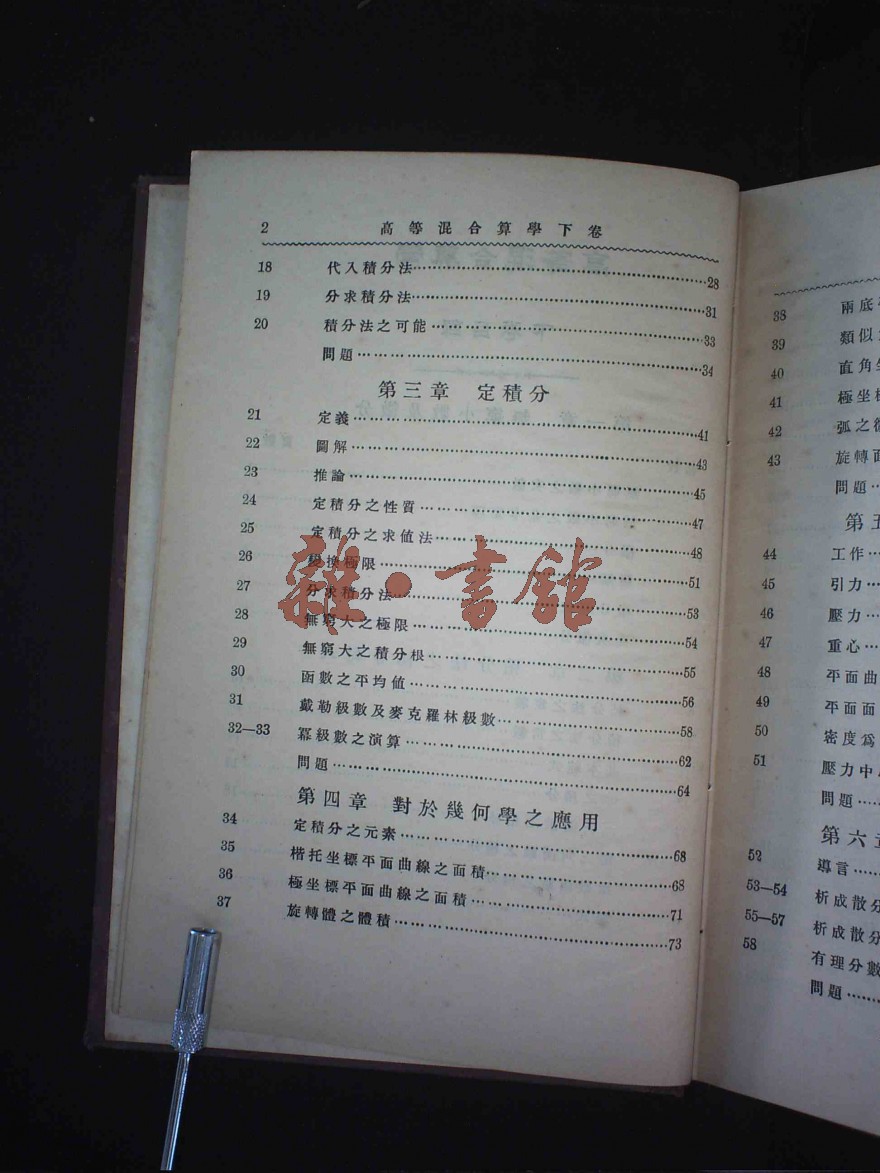 2 高等混合算學下卷
18 代入積分法……28
19 分求積分法……31
20 積分法之可能……33
問題……34
第三章 定積分
21 定義……41
22 圖解……43
23 推論……45
24 定積分之性質……47
25 定積分之求値法……48
26 變換極限……51
27 分求積分法……53
28 無窮大之極限……54
29 無窮大之積分根……55
30 函數之平均値……56
31 戴勒級數及麥克羅林級數……58
32—33 冪級數之演算……62
問題……64
第四章 對於幾何學之應用
34 定積分之元素……68
35 楷托坐標平面曲線之面積……68
36 極坐標平面曲線之面積……71
37 旋轉體之體積……73
雜·書館
38 兩底
39 類似
40 直角坐
41 極坐標
42 弧之
43 旋轉面
問題…
第五
44 工作…
45 引力…
46 壓力…
47 重心…
48 平面曲
49 平面面
50 密度爲
51 壓力中
問題…
第六章
52 導言…
53—54 析成散分
55—57 析成散分
58 有理分數
問題…